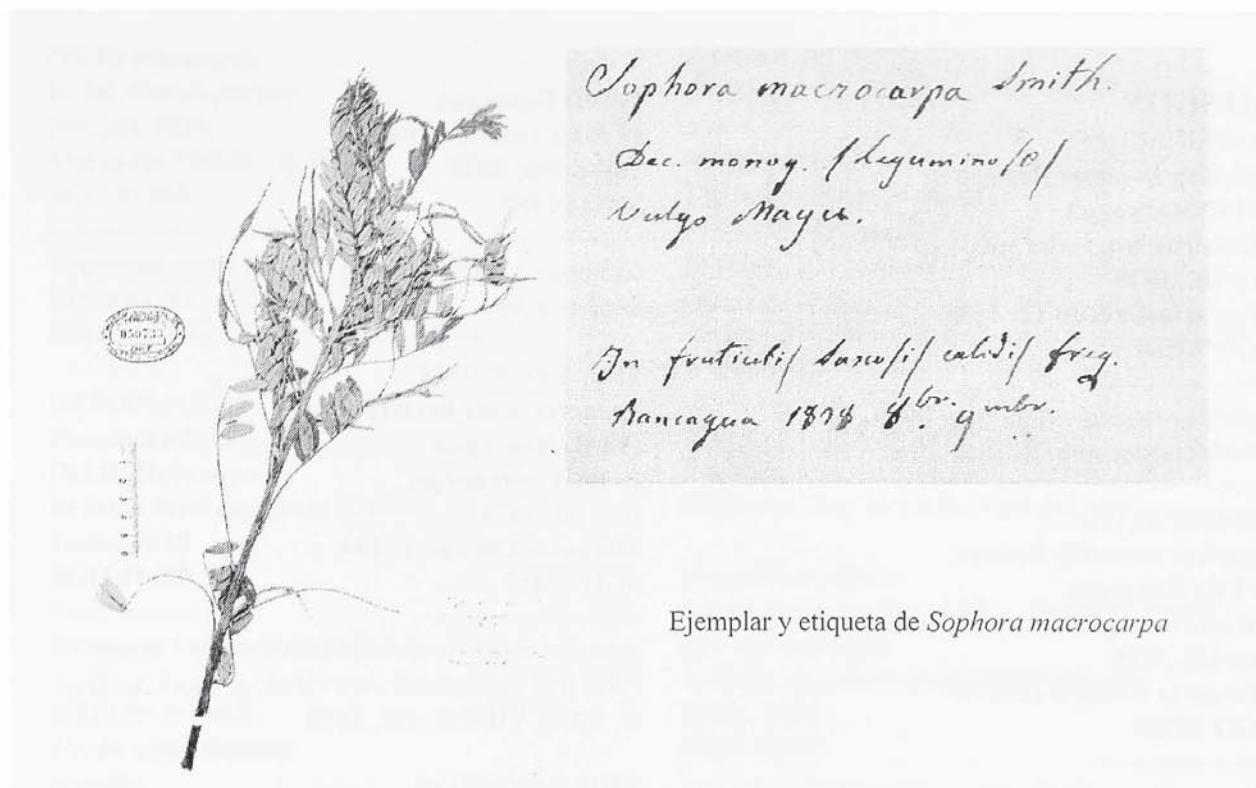 Sophora macrocarpa Smith.
Dec. monog. /Leguminosæ/
Vulgo Mayu.
In fruticetis saxosis calidis freq.
Rancagua 1828 8br. 9mbr.
Ejemplar y etiqueta de Sophora macrocarpa